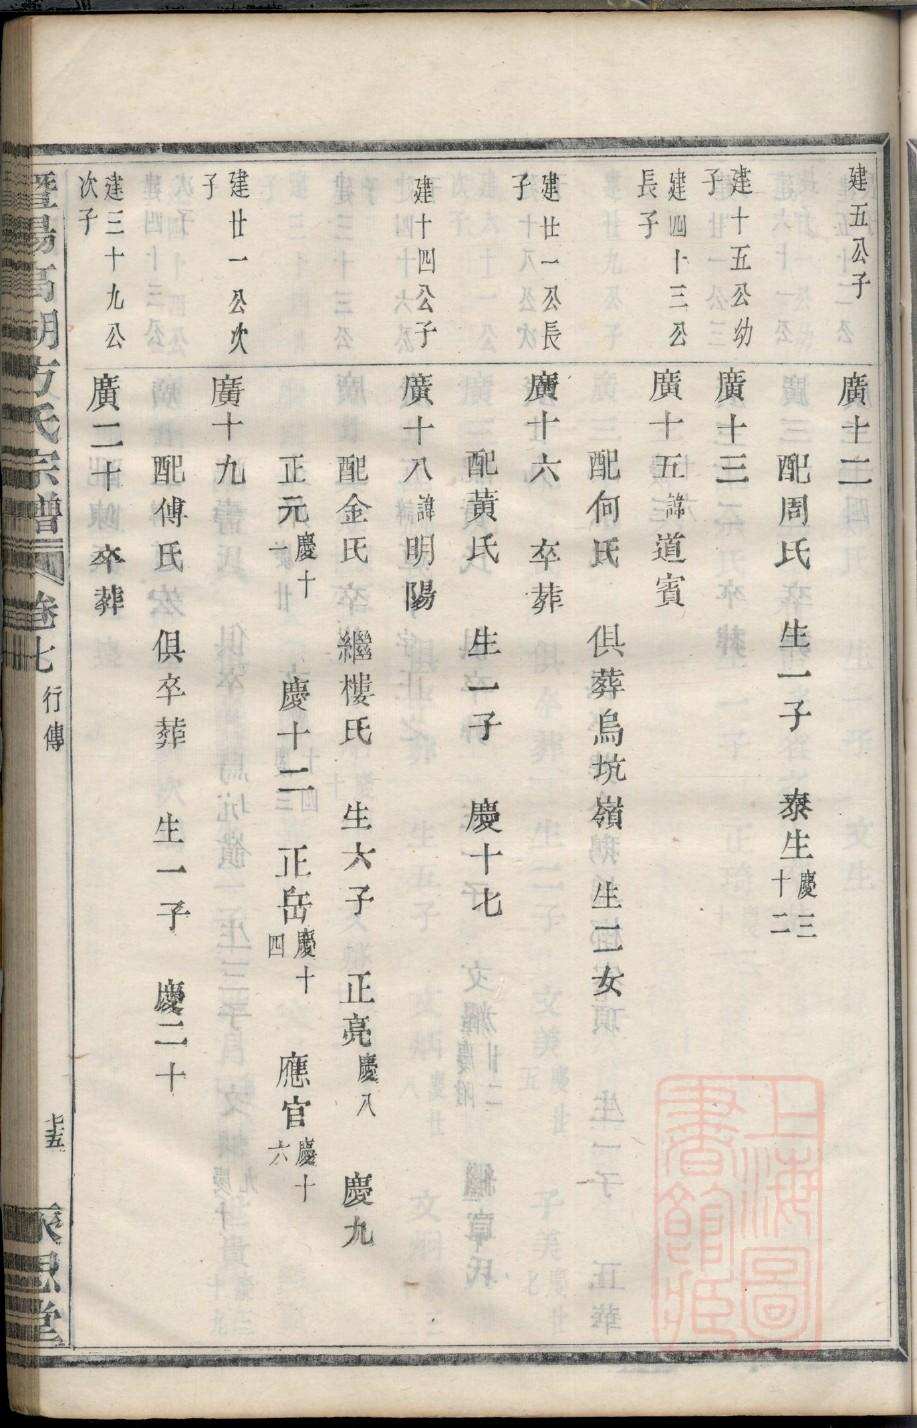 建五公子
廣十二
配周氏 生一子 泰生慶三十二
建十五公幼子
廣十三
建四十三公長子
廣十五諱道賓
配何氏 俱葬烏坑嶺 生二女
建廿一公長子
廣十六 卒葬
配黃氏 生一子 慶十七
建十四公子
廣十八諱明陽
配金氏 繼樓氏 生六子 正亮慶八 慶九
正元慶十一 慶十二 正岳慶十四 應官慶十六
建廿一公次子
廣十九
配傅氏 俱卒葬 生一子 慶二十
建三十九公次子
廣二十 卒葬
暨陽高湖方氏宗譜 卷七 行傳 七五 永思堂
上海圖書館藏